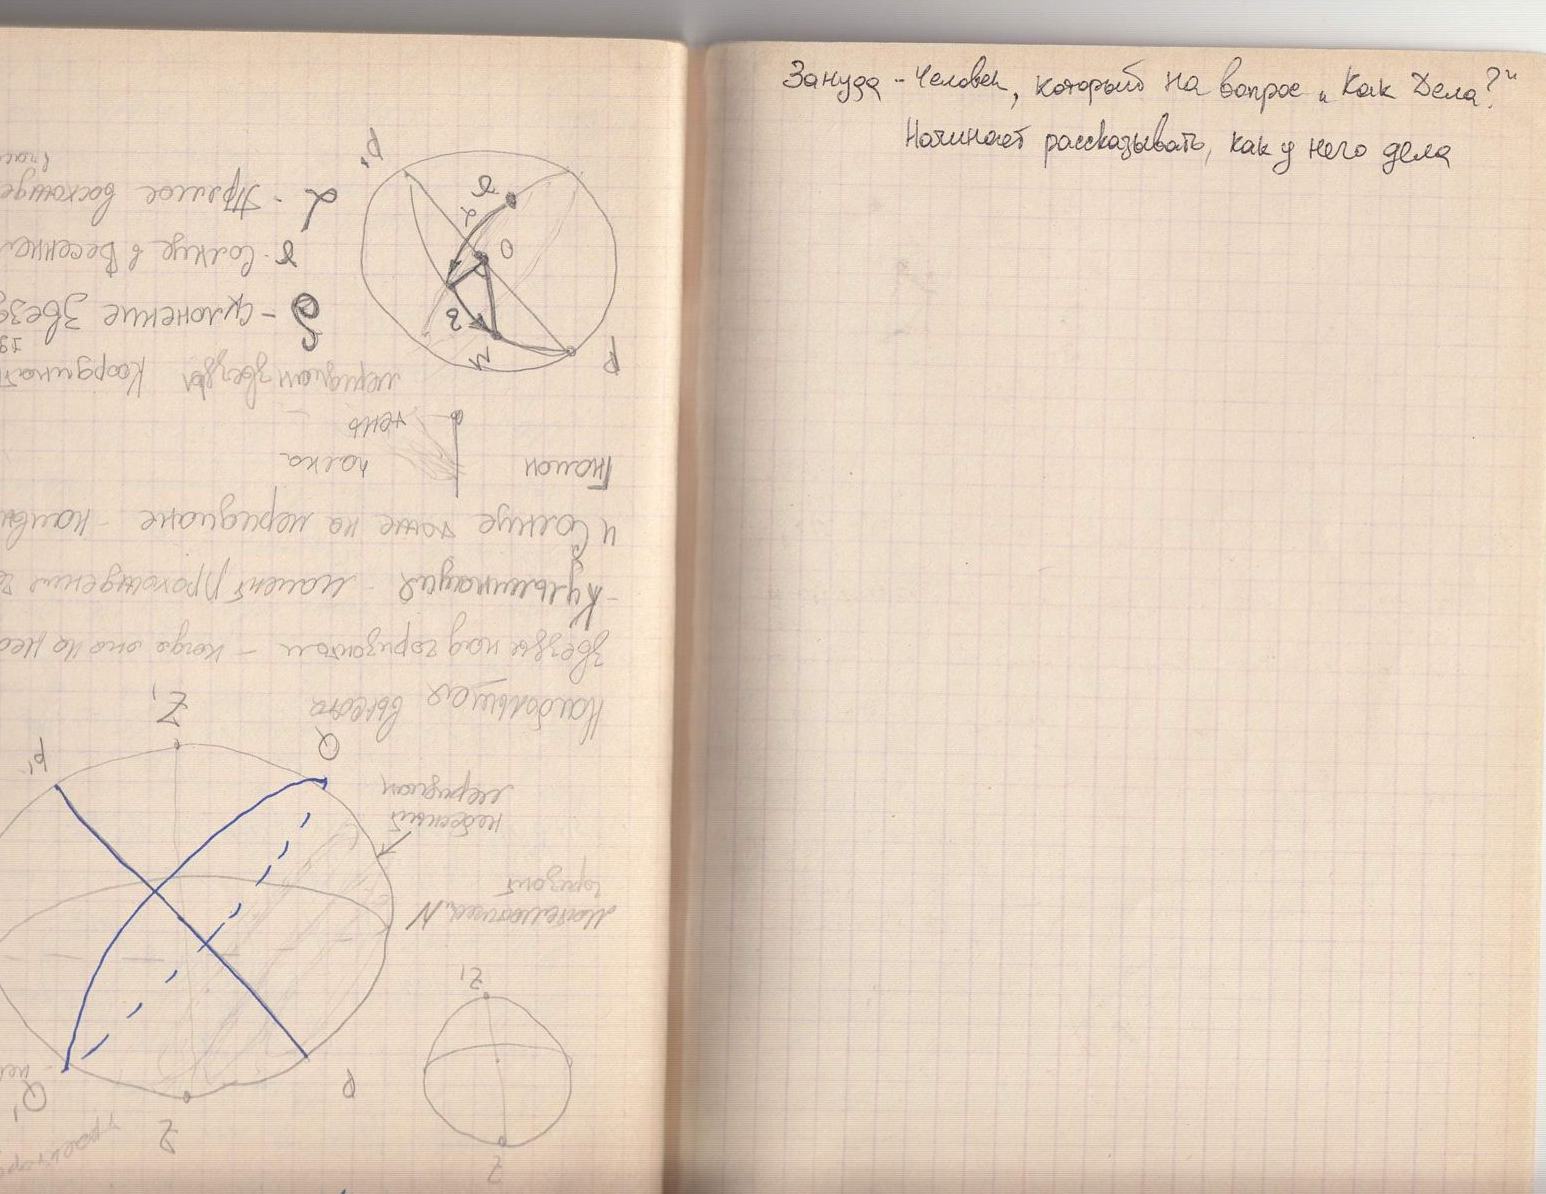 Зануда - Человек, который на вопрос „Как Дела?“
Начинает рассказывать, как у него дела
Z
Z₁
Математич. N
горизонт
небесный
меридиан
P
Z
Q'
P'
Z₁
Q
Наибольшая высота
звезды над горизонтом - когда она на
- Кульминация - момент прохождения
и Солнце тоже на меридиане -
Гномон палка
тень
меридиан звезды
P
M
δ
O
α
γ
P'
δ - склонение
γ - Солнце в
α - Прямое